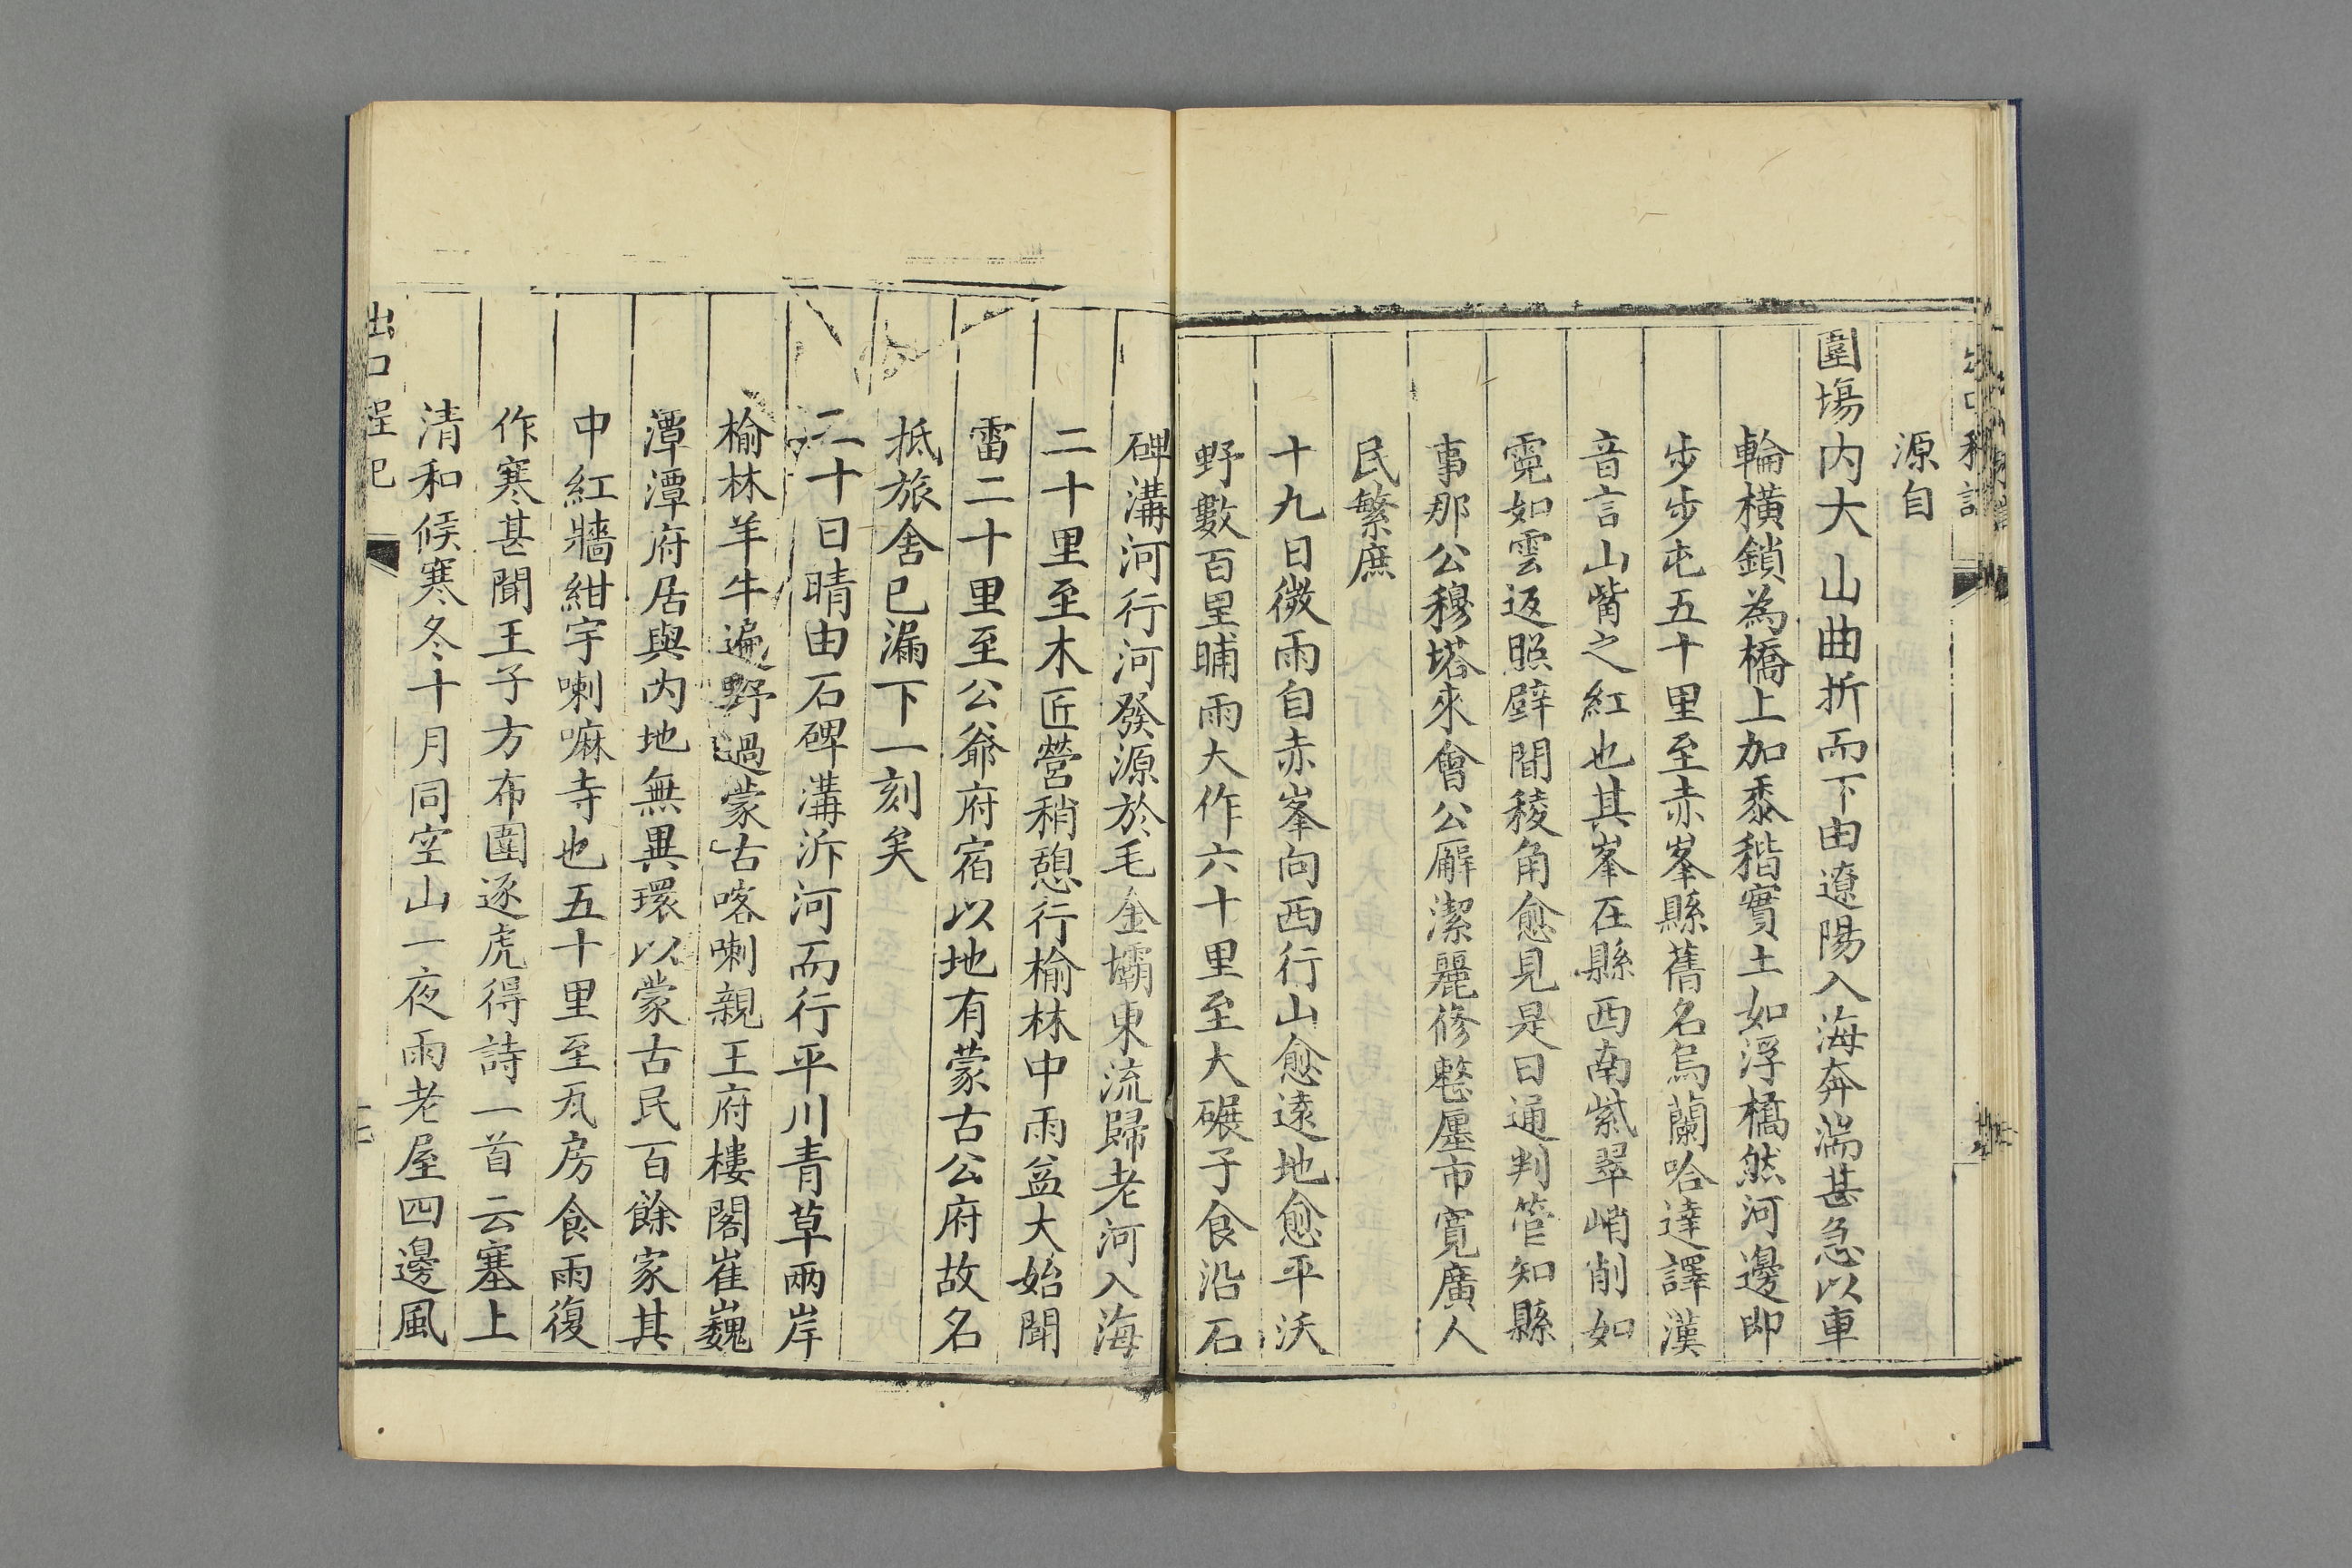 源自
圍塲内大山曲折而下由遼陽入海奔湍甚急以車
輪橫鎖為橋上加黍稭實土如浮橋然河邊即
步步屯五十里至赤峯縣舊名烏蘭哈達譯漢
音言山觜之紅也其峯在縣西南紫翠峭削如
霓如雲返照壁間稜角愈見是日通判管知縣
事那公穆塔來會公廨潔麗修整廛市寬廣人
民繁庶
十九日微雨自赤峯向西行山愈遠地愈平沃
野數百里晡雨大作六十里至大碾子食沿石
碑溝河行河發源於毛金壩東流歸老河入海
二十里至木匠營稍憩行榆林中雨益大始聞
雷二十里至公爺府宿以地有蒙古公府故名
抵旅舍已漏下一刻矣
二十日晴由石碑溝泝河而行平川青草兩岸
榆林羊牛遍野過蒙古喀喇親王府樓閣崔巍
潭潭府居與内地無異環以蒙古民百餘家其
中紅牆紺宇喇嘛寺也五十里至瓦房食雨復
作寒甚聞王子方布圍逐虎得詩一首云塞上
清和候寒冬十月同空山一夜雨老屋四邊風
出口程記